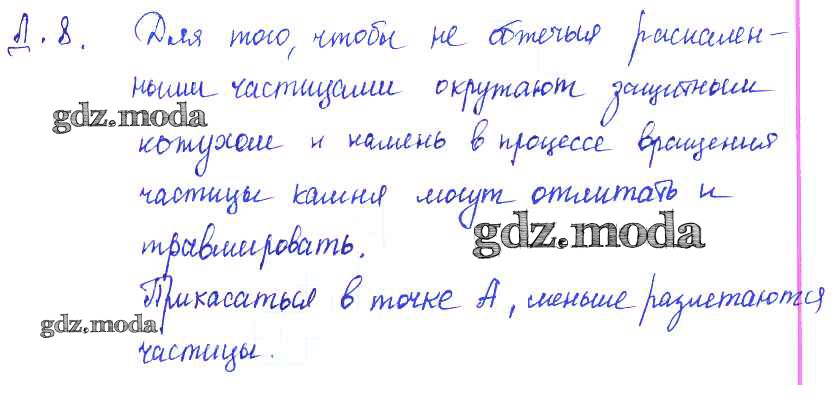 Д. 8. Для того, чтобы не обжечься раскален-
ными частицами окружают защитным
gdz.moda
кожухом и камень в процессе вращения
частицы камня могут отлитать и
gdz.moda
травмировать.
Прикасаться в точке А, меньше разлетаются
gdz.moda
частицы.